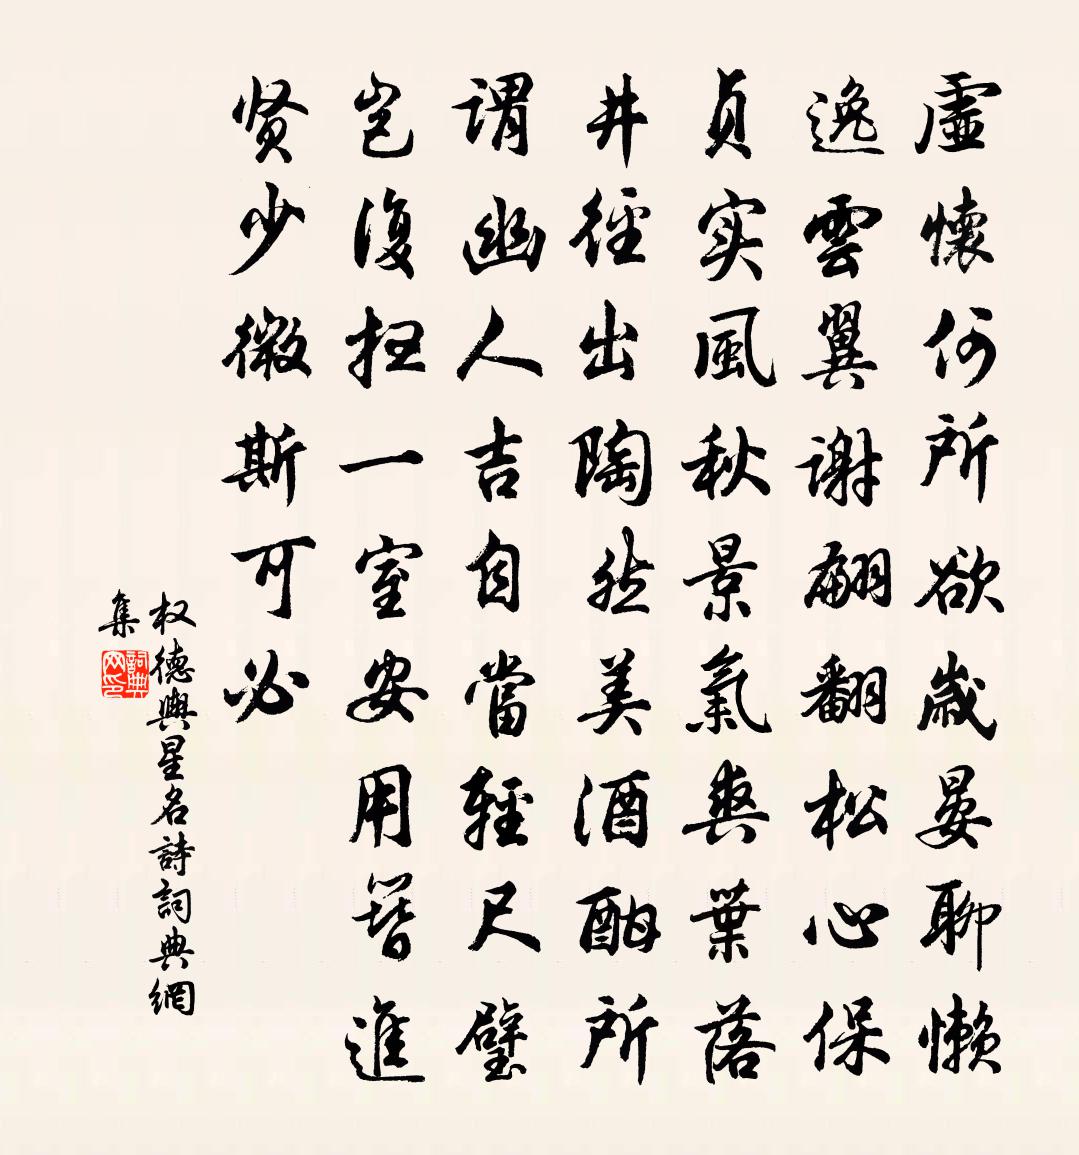 虛懷何所欲歲晏聊懶
逸雲翼謝翩翻松心保
貞实風秋景氣爽葉落
井徑出陶然美酒酣所
謂幽人吉自當輕尺璧
岂復扫一室安用簪進
贤少微斯可必
权德輿星名詩詞典網
集
詞典網印